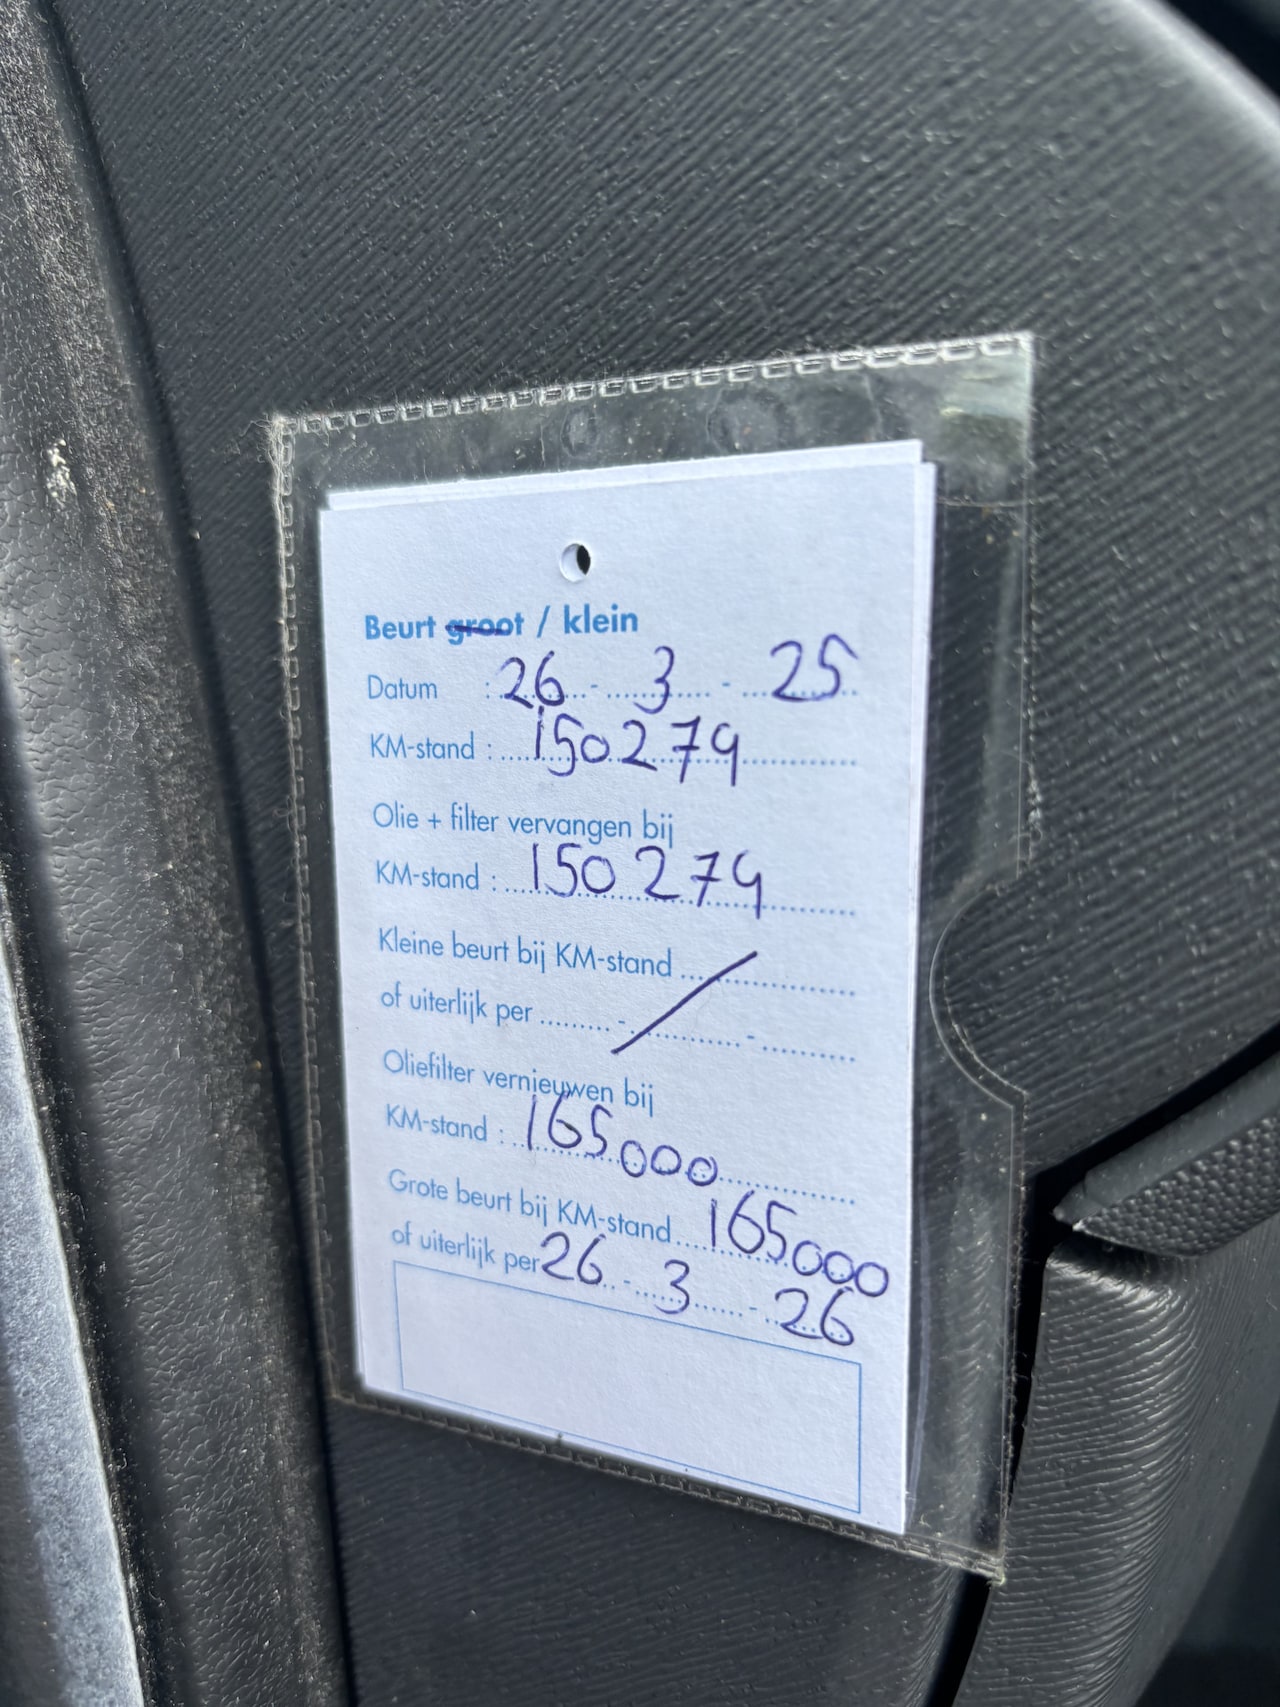 Beurt groot / klein
Datum : 26 - 3 - 25
KM-stand : 150279
Olie + filter vervangen bij
KM-stand : 150279
Kleine beurt bij KM-stand
of uiterlijk per
Oliefilter vernieuwen bij
KM-stand : 165000
Grote beurt bij KM-stand 165000
of uiterlijk per 26 - 3 - 26